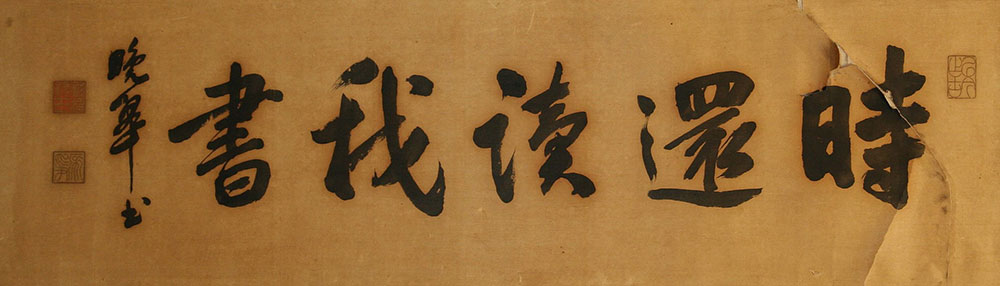 時還讀我書
晚翠书